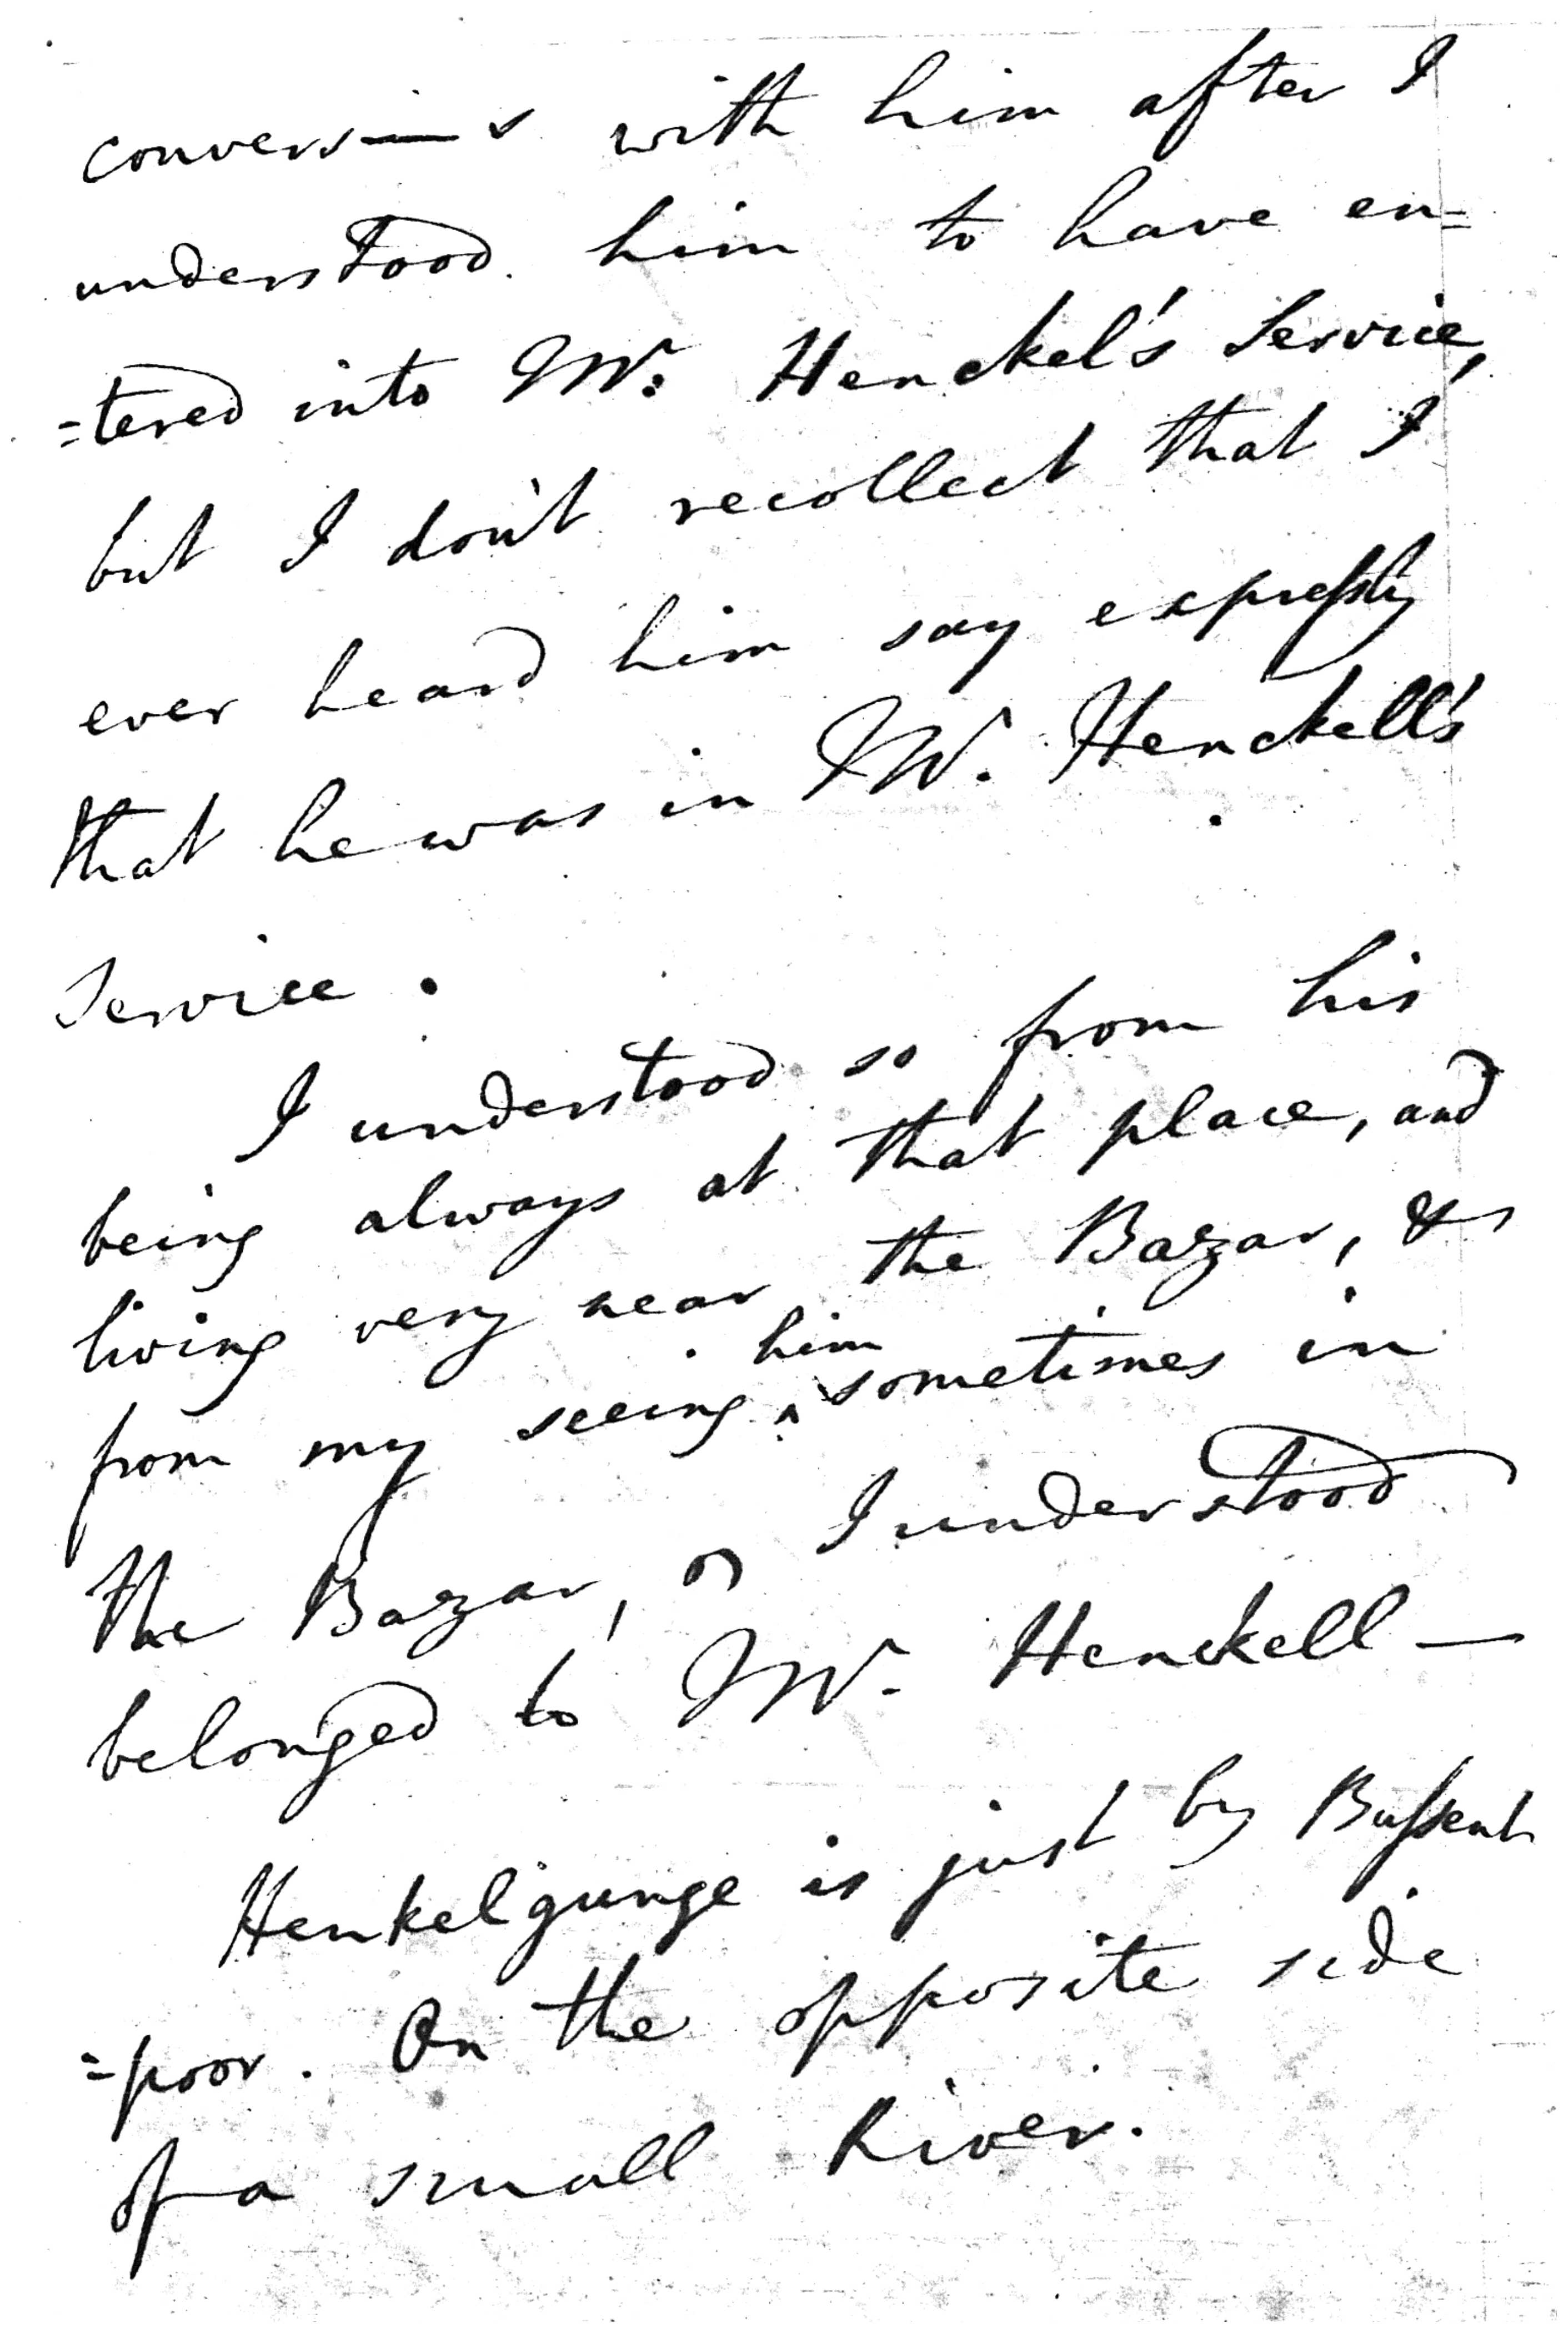 convers—s with him after I
understood him to have en=
=tered into Mr. Henckel's Service,
but I don't recollect that I
ever heard him say expreſsly
that he was in Mr. Henckell's
Service.
I understood so from his
being always at that place, and
living very near the Bazar, &
from my seeing ^him sometimes in
the Bazar, I understood
belonged to Mr. Henckell —
Henkelgunge is just by Buſsent
=poor. On the opposite side
of a small River.